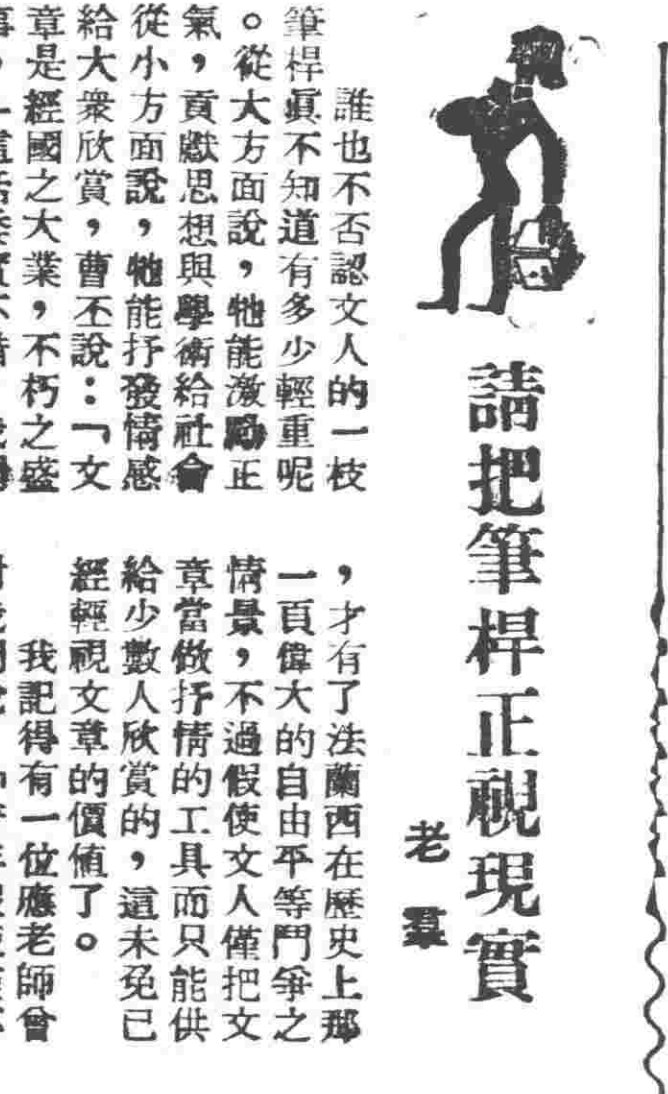 請把筆桿正視現實
老羣
誰也不否認文人的一枝
筆桿眞不知道有多少輕重呢
。從大方面說,牠能激勵正
氣,貢獻思想與學術給社會
從小方面說,牠能抒發情感
給大衆欣賞,曹丕說:「文
章是經國之大業,不朽之盛
,才有了法蘭西在歷史上那
一頁偉大的自由平等鬥爭之
情景,不過假使文人僅把文
章當做抒情的工具而只能供
給少數人欣賞的,這未免已
經輕視文章的價值了。
我記得有一位應老師曾